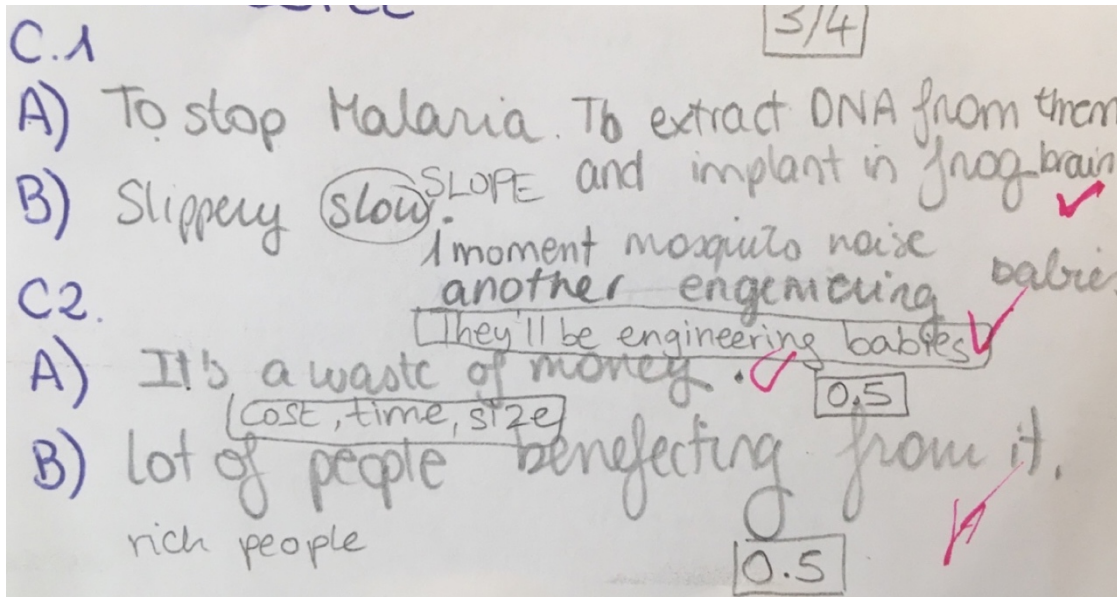 3/4
C.1
A) To stop Malaria. To extract DNA from them
and implant in frog brain
B) Slippery slow. SLOPE
1 moment mosquito noise
another engenieuing babies
C2.
They'll be engineering babies
A) It's a waste of money.
0.5
cost, time, size
B) lot of people benefecting from it.
rich people
0.5